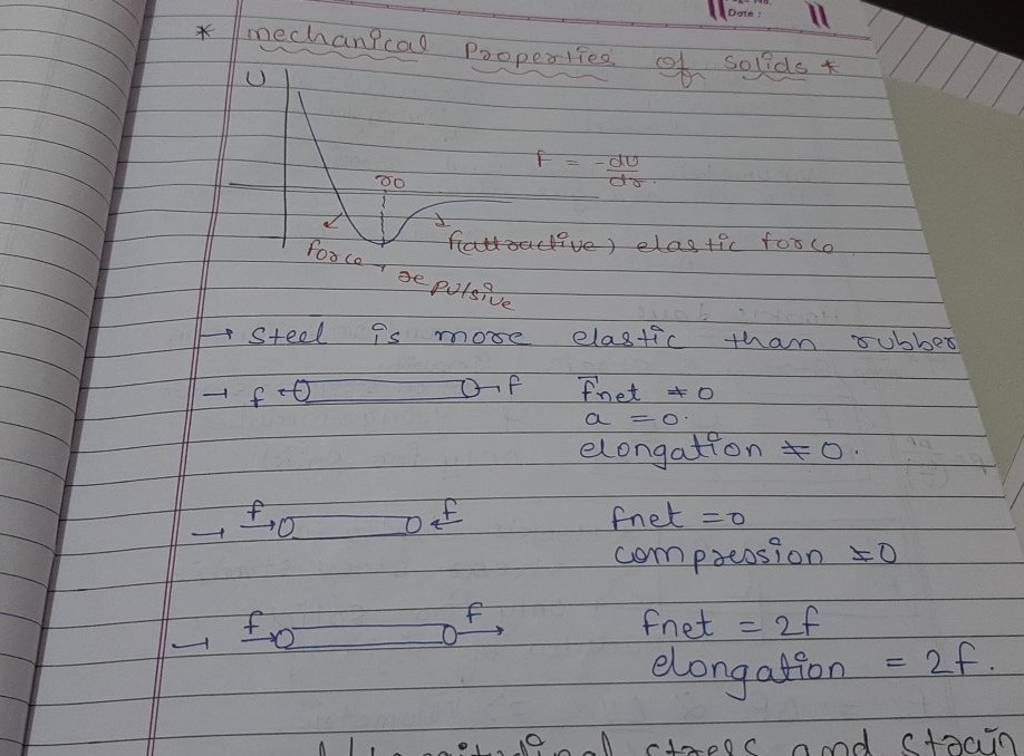 Date :
* mechanical Properties of solids *
U
F = -dU/dr
r0
f(attractive) elastic force
force, repulsive
→ steel is more elastic than rubber
→ f f Fnet ≠ 0
a = 0.
elongation ≠ 0.
→ f f fnet = 0
compression ≠ 0
→ f f fnet = 2f
elongation = 2f.
stress and strain